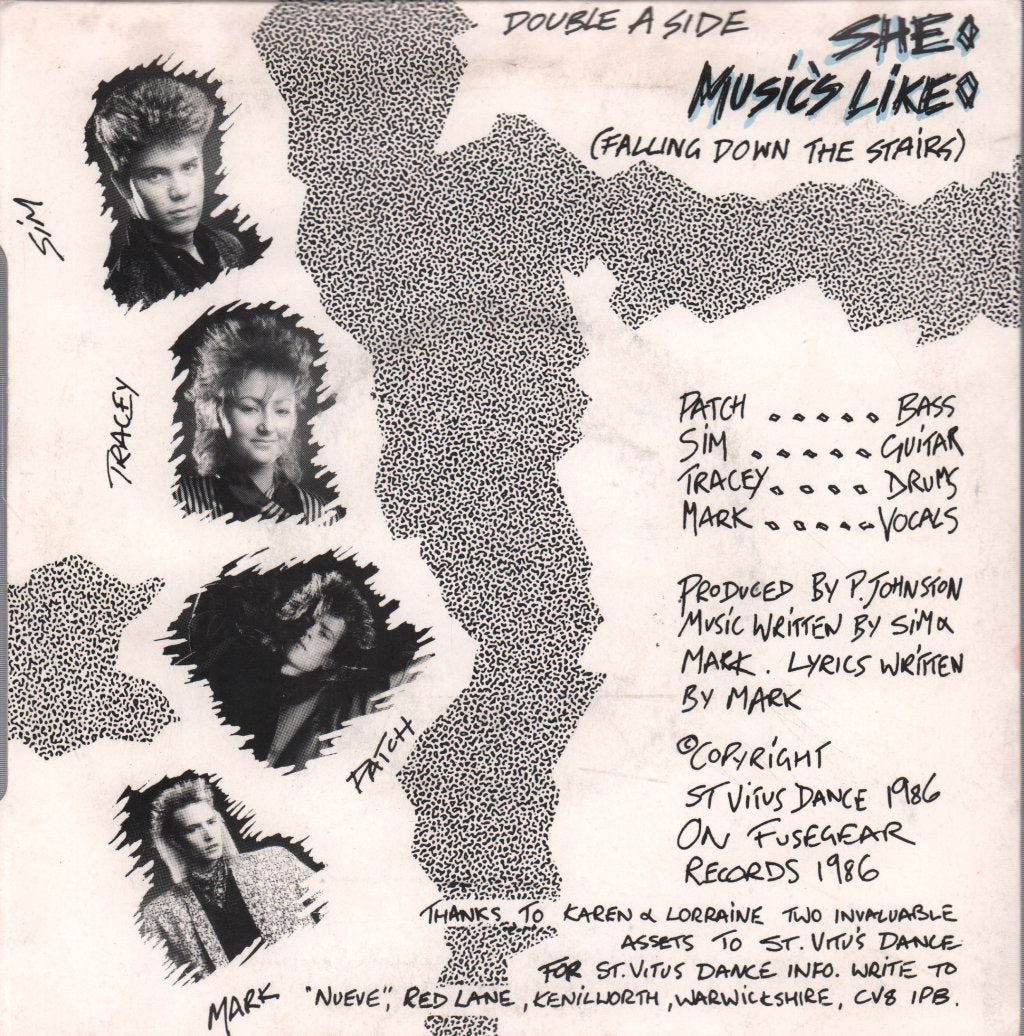 DOUBLE A SIDE
SHE
MUSIC'S LIKE
(FALLING DOWN THE STAIRS)
SIM
TRACEY
PATCH ..... BASS
SIM ..... GUITAR
TRACEY .... DRUMS
MARK ..... VOCALS
PRODUCED BY P. JOHNSTON
MUSIC WRITTEN BY SIM &
MARK. LYRICS WRITTEN
BY MARK
PATCH
© COPYRIGHT
ST VITUS DANCE 1986
ON FUSEGEAR
RECORDS 1986
THANKS TO KAREN & LORRAINE TWO INVALUABLE
ASSETS TO ST. VITU'S DANCE
FOR ST. VITUS DANCE INFO. WRITE TO
MARK
"NUEVE", RED LANE, KENILWORTH, WARWICKSHIRE, CV8 1PB.